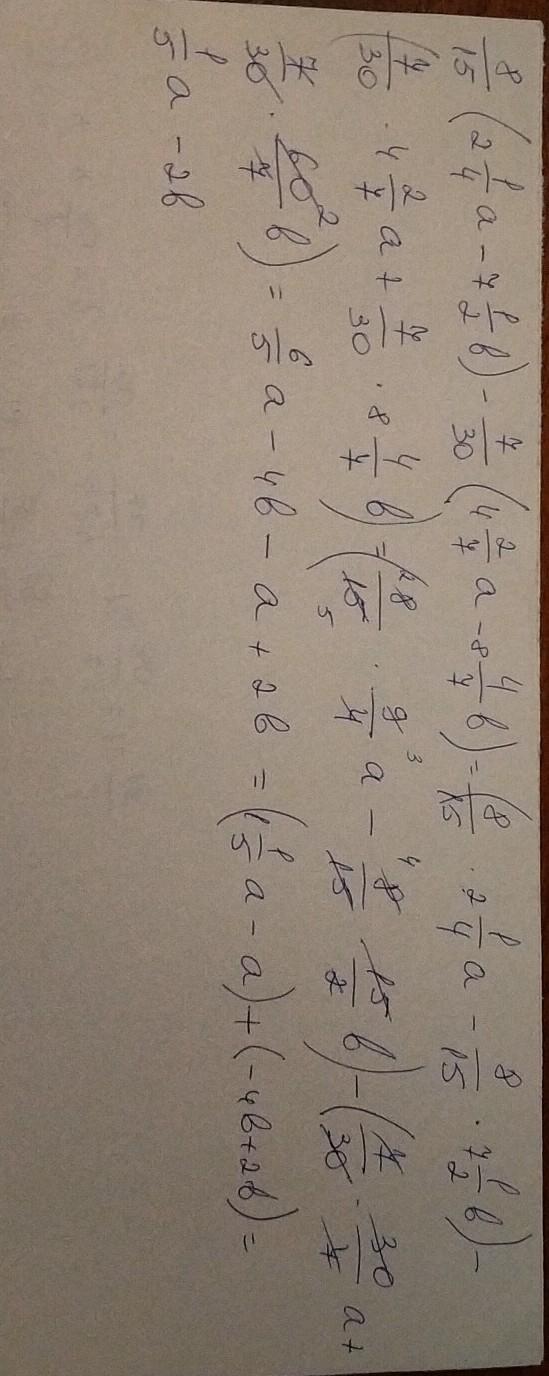 8/15 (2 1/4 a - 7 1/2 b) - 7/30 (4 2/7 a - 8 4/7 b) = (8/15 · 2 1/4 a - 8/15 · 7 1/2 b) -
(7/30 · 4 2/7 a + 7/30 · 8 4/7 b) = (8/15 · 9/4 a - 8/15 15/2 b) - (7/30 · 30/7 a +
7/30 · 60/7 b) = 6/5 a - 4b - a + 2b = (1 1/5 a - a) + (-4b + 2b) =
1/5 a - 2b